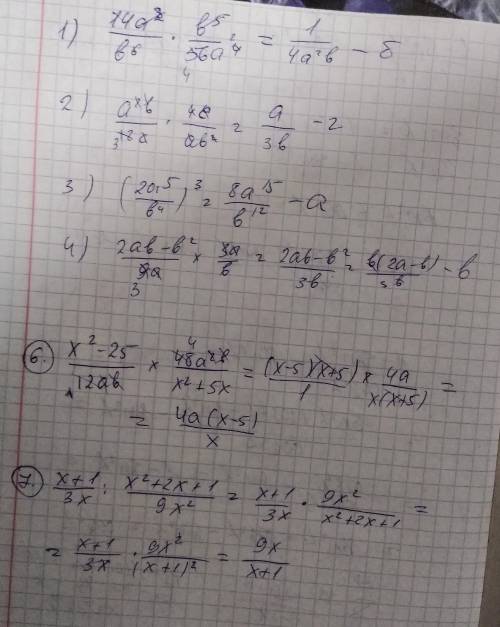 1) 14a²/b⁶ · b⁵/56a⁴ = 1/4a²b – б
2) a²b/12a · 4a/ab² = a/3b – г
3) (2a⁵/b⁴)³ = 8a¹⁵/b¹² – а
4) 2ab–b²/9a × 3a/b = 2ab–b²/3b = b(2a–b)/3b – в
6. x²–25/12ab × 48a²b/x²+5x = (x–5)(x+5)/1 × 4a/x(x+5) =
= 4a(x–5)/x
7. x+1/3x : x²+2x+1/9x² = x+1/3x · 9x²/x²+2x+1 =
= x+1/3x · 9x²/(x+1)² = 9x/x+1